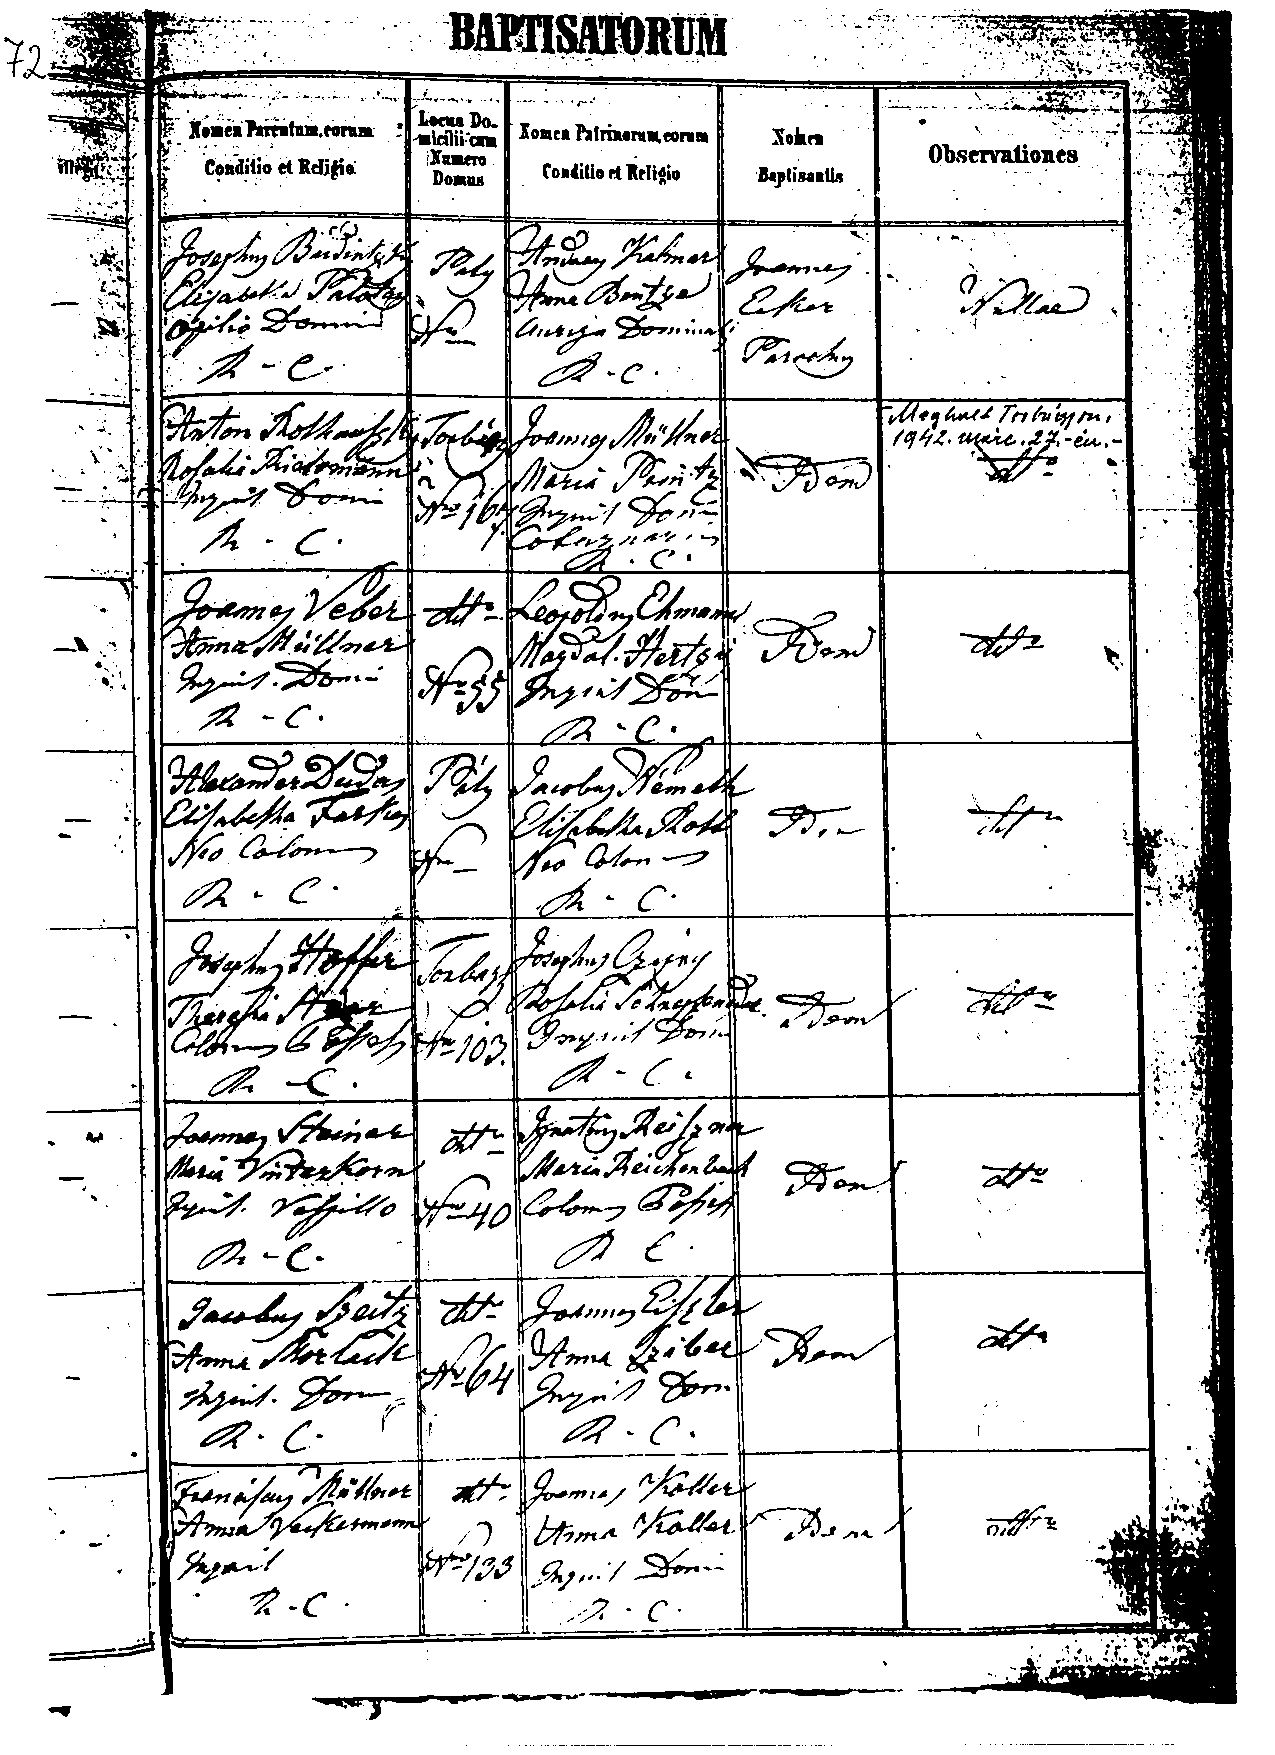 72
BAPTISATORUM
Nomen Parentum, eorum
Conditio et Religio
Locus Do-
micilii cum
Numero
Domus
Nomen Patrinorum, eorum
Conditio et Religio
Nomen
Baptisantis
Observationes
Josephus
Elisabetha
Opilio Domin
R - C.
Páty
Nro —
Andreas Kalmar
Anna
Auriga Dominal
R - C.
Joannes
Ecker
Parochus
Nullae
Anton
Rosalia
Inquil Domin
R - C.
Torbágy
Nro 16
Joannes Müllner
Maria
Inquil Domin
R - C.
Idem
Meghalt Torbágyon.
1942. márc. 27.-én.-
dtto
Joannes Veber
Anna Müllner
Inquil. Domin
R - C.
dtto
Nro 55
Leopoldus Ehmann
Magdal. Hertzi
Inquil Domin
R - C.
Idem
dtto
Alexander Dudas
Elisabetha Farkas
Neo Colonus
R - C.
Páty
Nro —
Jacobus Németh
Elisabetha Roth
Neo Colonus
R - C.
Idem
dtto
Josephus Hoffer
Theresia
Colonus
R - C.
Torbagy
Nro 103.
Josephus
Rosalia
Inquil Domin
R - C.
Idem
dtto
Joannes Steiner
Maria Vinterkorn
Inquil.
R - C.
dtto
Nro 40
Ignatius Reiszner
Maria Reichenbach
Colonus
R C.
Idem
dtto
Jacobus Szeitz
Anna
Inquil. Domin
R - C.
dtto
Nro 64
Joannes Eiszler
Anna
Inquil Domin
R - C.
Idem
dtto
Franciscus Müllner
Anna Veckermann
Inquil
R - C.
dtto
Nro 133
Joannes Koller
Anna Koller
Inquil Domin
R - C.
Idem
dtto